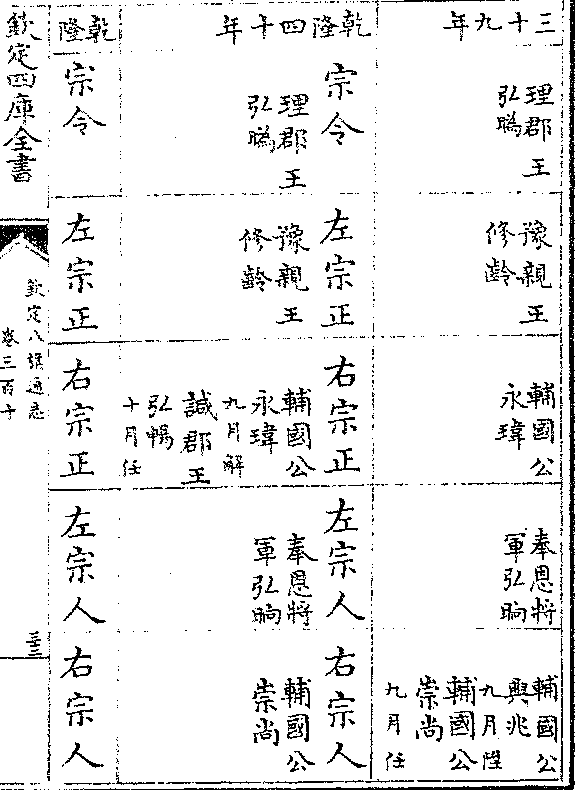 三十九年
理郡王
弘㬙
豫親王
修齡
輔國公
永瑋
奉恩將
軍弘晌
輔國公
興兆
九月性
輔國公
崇尚
九月任
乾隆四十年
宗令
理郡王
弘㬙
左宗正
豫親王
修齡
右宗正
輔國公
永瑋
九月解
諴郡王
弘暢
十月任
左宗人
奉恩將
軍弘晌
右宗人
輔國公
崇尚
乾隆
宗令
左宗正
右宗正
左宗人
右宗人
欽定四庫全書
欽定八旗通志
卷三百十
三三